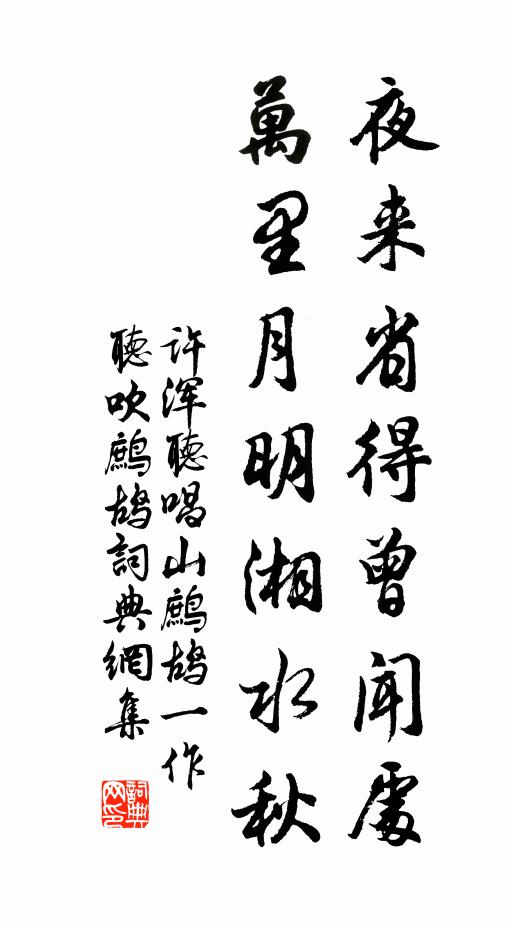 夜来省得曾闻處
萬里月明湘水秋
许渾聽唱山鷓鴣一作
聽吹鷓鴣詞典網集
詞典
网印